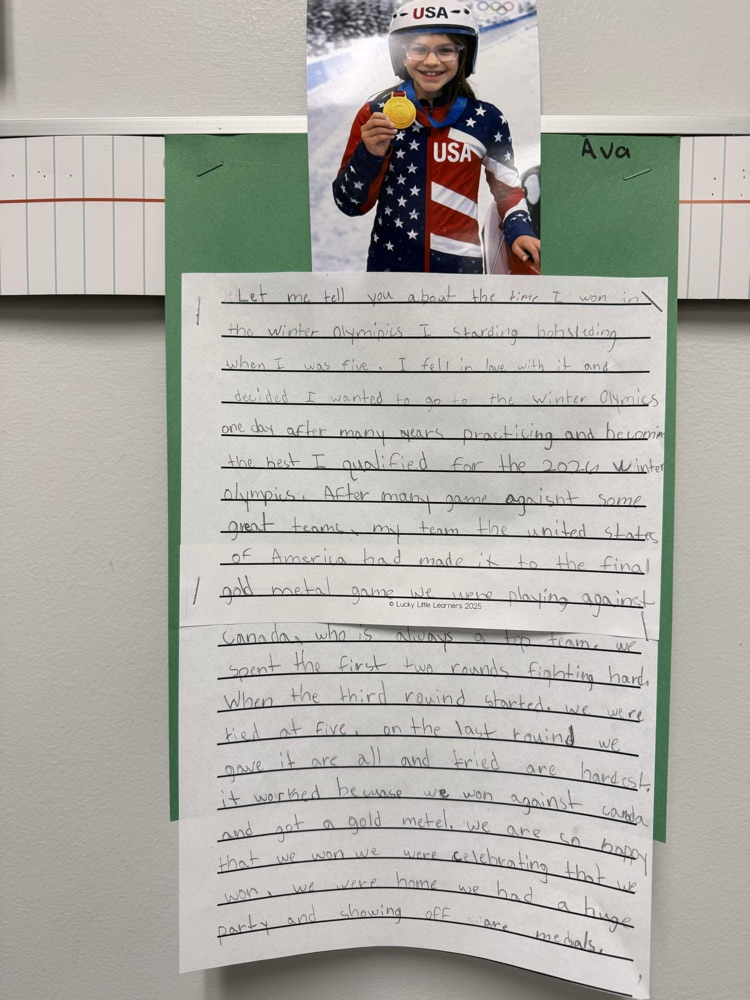 USA
USA
Ava
Let me tell you about the time I won in
the winter Olymipics I starding bobsleding
when I was five. I fell in love with it and
decided I wanted to go to the winter Olymics
one day after many years practicing and becomin
the best I qualified for the 2026 winter
olympics. After many game agaisnt some
great teams, my team the united states
of America had made it to the final
gold metal game we were playing against
© Lucky Little Learners 2025
Canada, who is always a top team. we
spent the first two rounds fighting hard.
When the third rouind started. we were
tied at five. on the last rouind we
gave it are all and tried are hardest.
it worked because we won against canda
and got a gold metel. we are so happy
that we won we were celebrating that we
won. we were home we had a huge
party and showing off are medals.